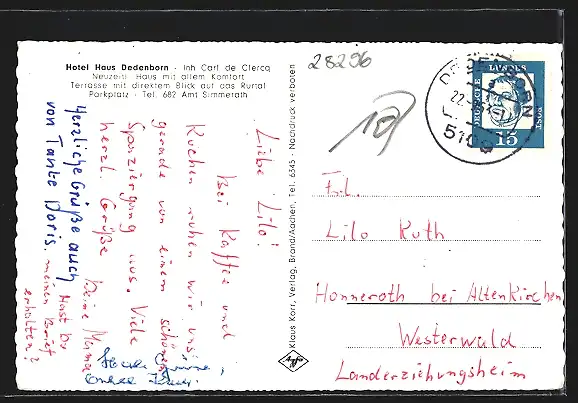 Hotel Haus Dedenborn - Inh Carl de Clercq
Neuzeitl Haus mit allem Komfort
Terrasse mit direktem Blick auf das Rurtal
Parkplatz - Tel. 682 Amt Simmerath
28296
Liebe Lilo!
Bei Kaffee und
Kuchen ruhen wir uns
gerade von einem schönen
Spaziergang aus. Viele
herzl. Grüße Deine Mama
Hast Du
meinen Brief
erhalten?
Herzliche Grüße auch
von Tante Doris.
Klaus Korr, Verlag, Brand/Aachen, Tel. 6345 · Nachdruck verboten
Agfa
DEUTSCHE BUNDESPOST
15
5109
22.
Frl.
Lilo Kuth
Honneroth bei Altenkirchen
Westerwald
Landerziehungsheim